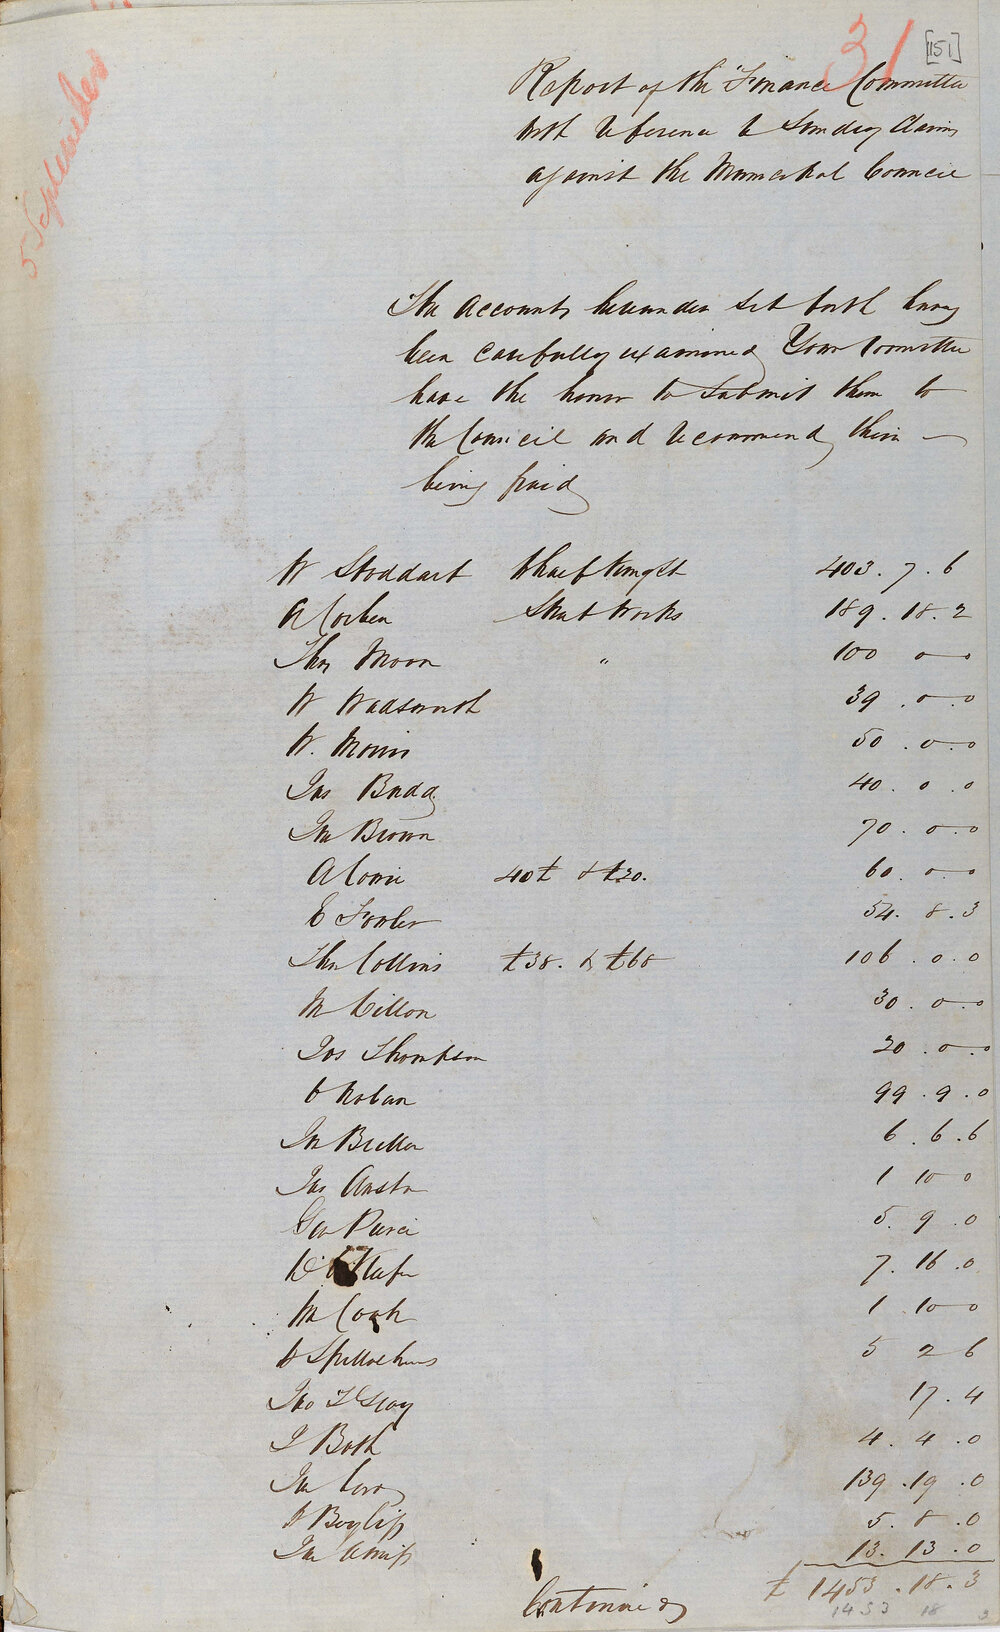 31
[151]
5 September
Report of the Finance Committee
with reference to Sundry Claims
against the Municipal Council
The accounts hereunder set forth having
been carefully examined Your Committee
have the honor to submit them to
the Council and recommend their
being paid
W Stoddart Wharf Kingst 403.7.6
A Corben Street Works 189.18.2
Thos Moon " 100 0 0
W Wadsworth 39.0.0
W. Morris 50.0.0
Jas Budd 40.0.0
Jno Brown 70.0.0
A Cowie 40£ & £20. 60.0.0
E Fowler 54.8.3
Thos Collins £38. & £68 106.0.0
M Dillon 30.0.0
Jos Thompson 20.0.0
99.9.0
Jn 6.6.6
Jas Austin 1 10 0
Geo 5.9.0
7.16.0
Cook 1 10 0
5 2 6
Jno 17.4
J Booth 4.4.0
Jno 139.19.0
5.8.0
Jno 13.13.0
£1453.18.3
1453 18 3
Continued